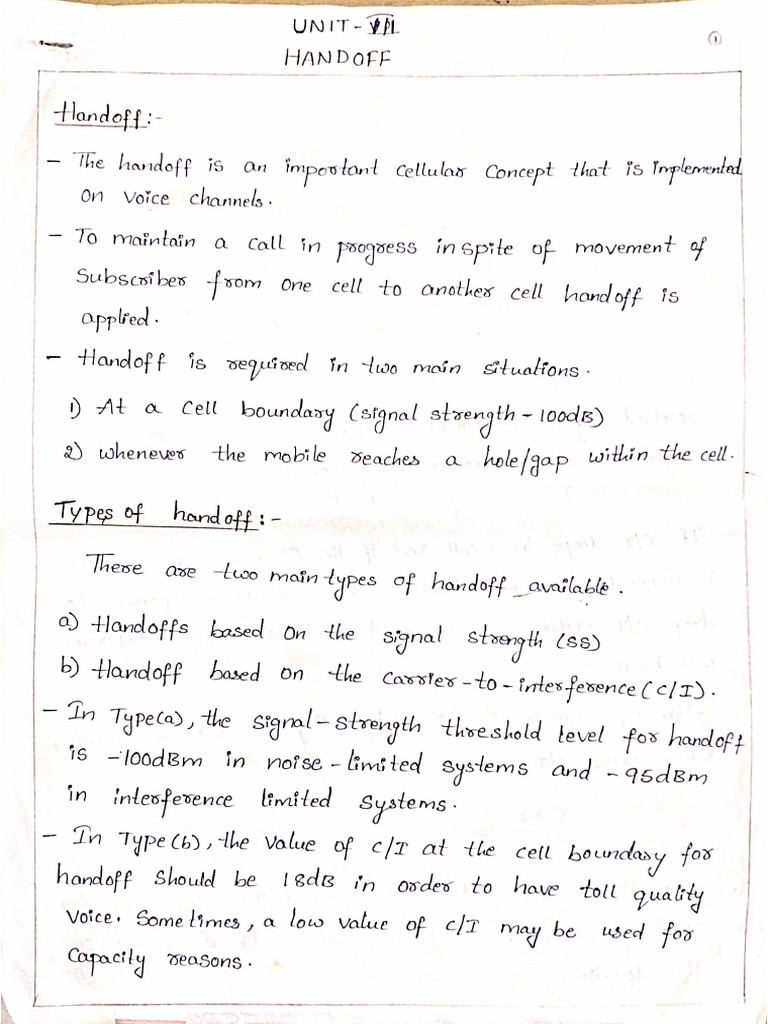 UNIT-VII
HANDOFF
1
Handoff:-
- The handoff is an important cellular concept that is implemented
on voice channels.
- To maintain a call in progress inspite of movement of
subscriber from one cell to another cell handoff is
applied.
- Handoff is required in two main situations.
1) At a cell boundary (signal strength -100dB)
2) whenever the mobile reaches a hole/gap within the cell.
Types of handoff:-
There are two main types of handoff available.
a) Handoffs based on the signal strength (SS)
b) Handoff based on the carrier-to-interference (C/I).
- In Type(a), the signal-strength threshold level for handoff
is -100dBm in noise-limited systems and -95dBm
in interference limited systems.
- In Type(b), the value of C/I at the cell boundary for
handoff should be 18dB in order to have toll quality
voice. Sometimes, a low value of C/I may be used for
capacity reasons.